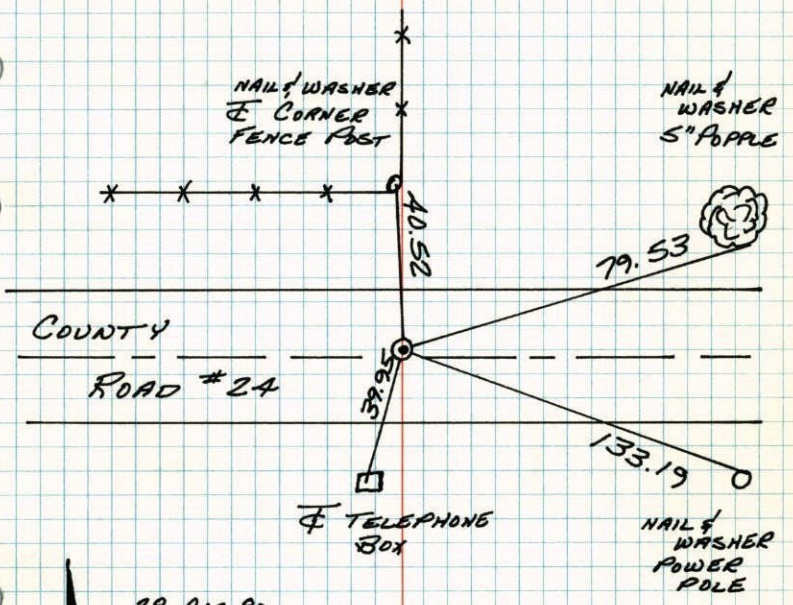 NAIL & WASHER
℄ CORNER
FENCE POST
NAIL &
WASHER
5" POPPLE
40.52
79.53
COUNTY
ROAD #24
39.95
133.19
℄ TELEPHONE
BOX
NAIL &
WASHER
POWER
POLE